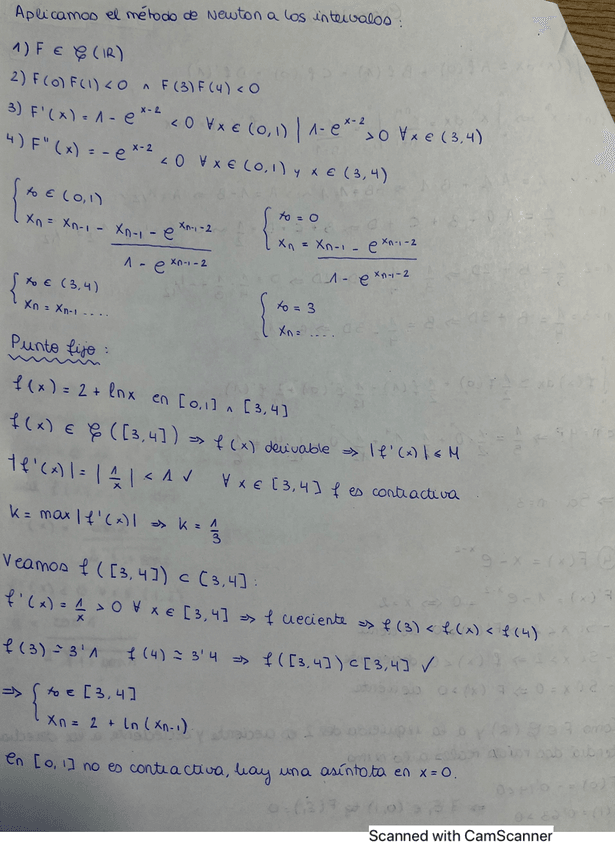 Aplicamos el método de Newton a los intervalos:
1) F ∈ C(IR)
2) F(0)F(1)<0 ∧ F(3)F(4)<0
3) F'(x) = 1 - e^{x-2} <0 ∀x∈(0,1) | 1-e^{x-2} >0 ∀x∈(3,4)
4) F''(x) = -e^{x-2} <0 ∀x∈(0,1) y x∈(3,4)
{ x_0 ∈ (0,1)
x_n = x_{n-1} - \frac{x_{n-1} - e^{x_{n-1}-2}}{1 - e^{x_{n-1}-2}}
{ x_0 = 0
x_n = \frac{x_{n-1} - e^{x_{n-1}-2}}{1 - e^{x_{n-1}-2}}
{ x_0 ∈ (3,4)
x_n = x_{n-1} ....
{ x_0 = 3
x_n = ....
Punto fijo:
f(x) = 2 + lnx en [0,1] ∧ [3,4]
f(x) ∈ C([3,4]) ⇒ f(x) derivable ⇒ |f'(x)| ≤ M
|f'(x)| = |\frac{1}{x}| < 1 ✓ ∀x∈[3,4] f es contractiva
k = max|f'(x)| ⇒ k = \frac{1}{3}
Veamos f([3,4]) ⊂ [3,4]:
f'(x) = \frac{1}{x} > 0 ∀x∈[3,4] ⇒ f creciente ⇒ f(3) < f(x) < f(4)
f(3) ≃ 3'1 f(4) ≃ 3'4 ⇒ f([3,4]) ⊂ [3,4] ✓
⇒ { x_0 ∈ [3,4]
x_n = 2 + ln(x_{n-1})
en [0,1] no es contractiva, hay una asíntota en x=0.
Scanned with CamScanner